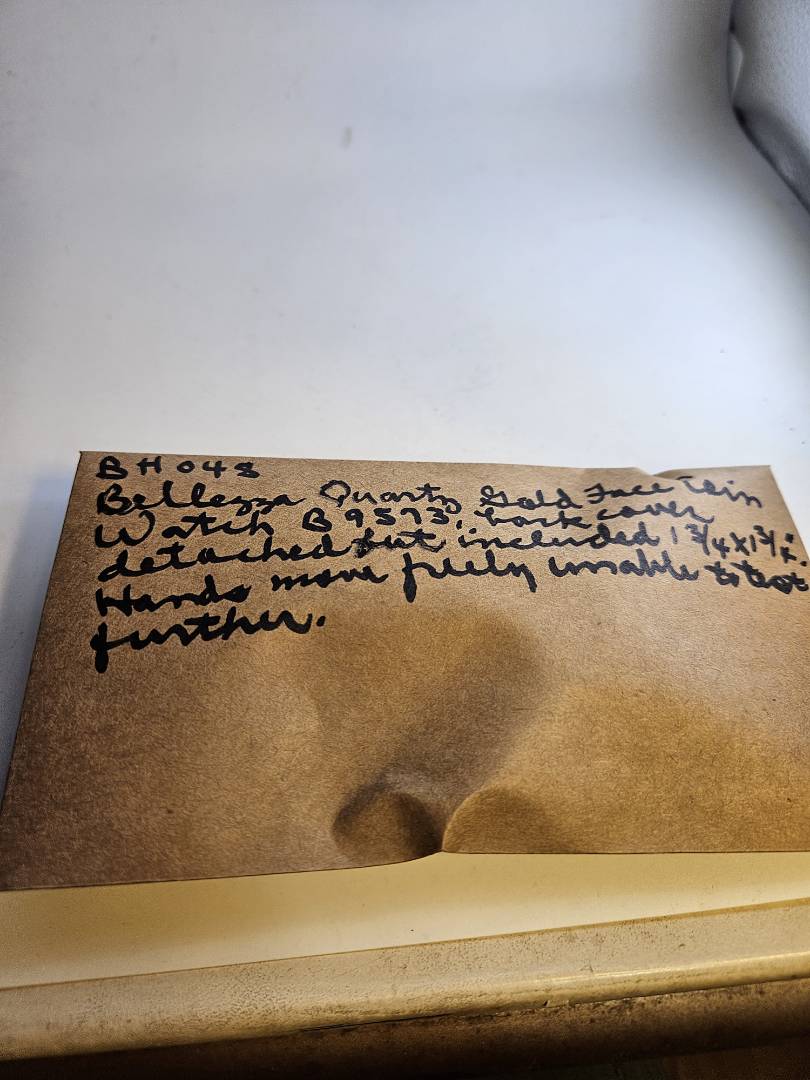 BH 048
Bellezza Quartz Gold Face
Watch B 9573, back cover
detached but included 1 3/4 x 1 3/4.
Hands move freely unable to test
further.